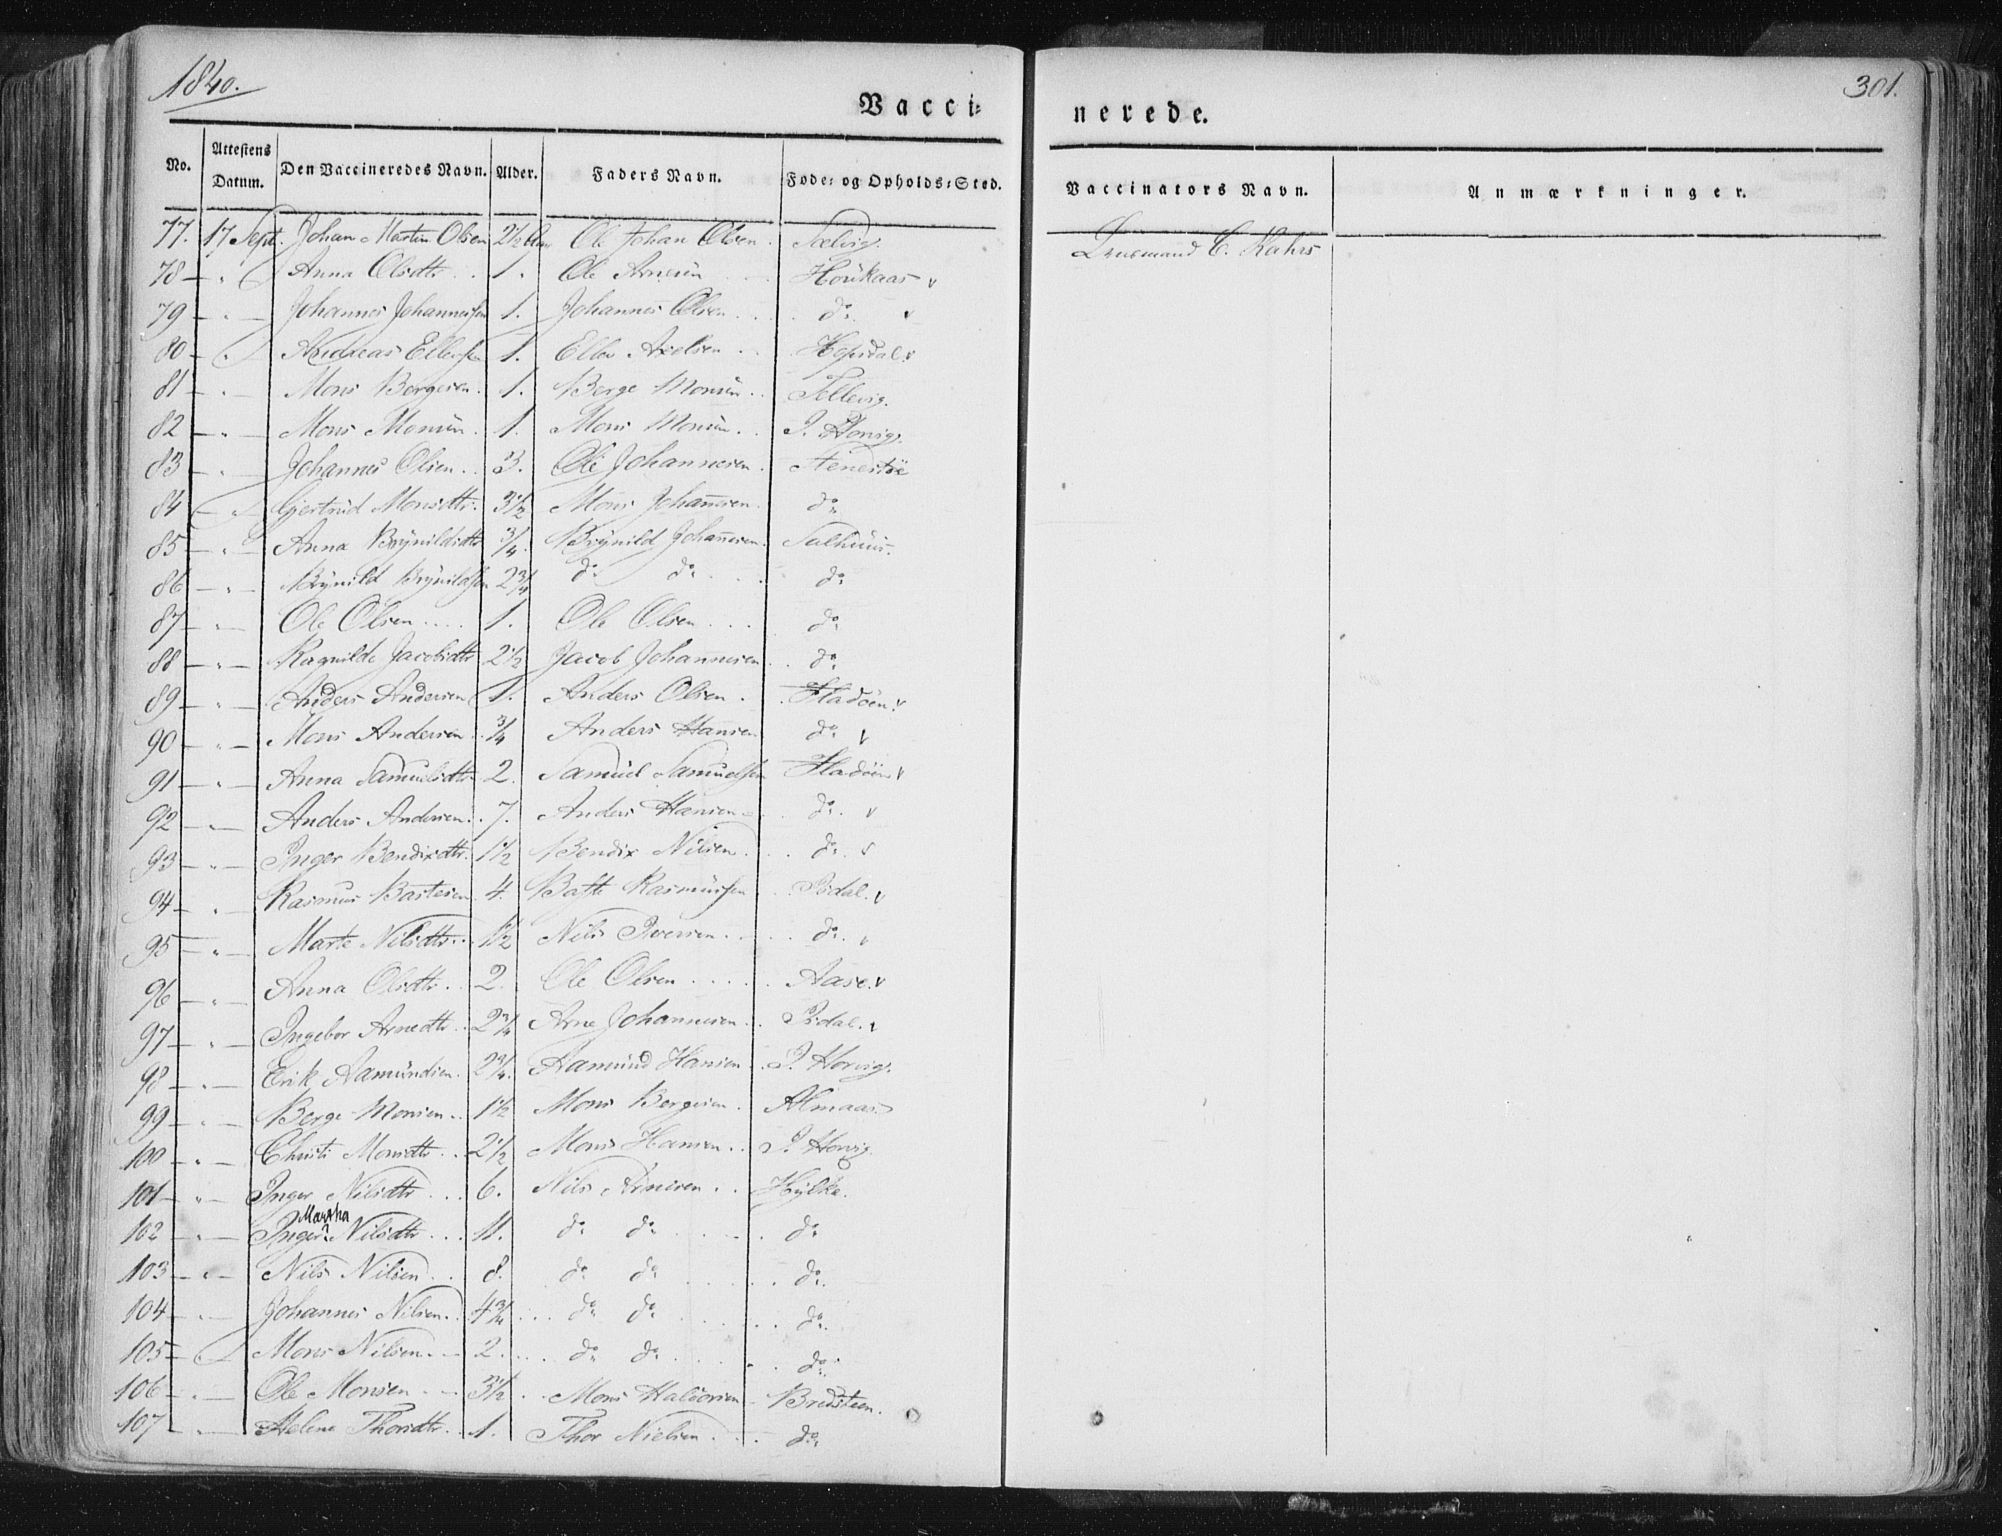 1840.
301.
Vacci= nerede.
No. Attestens Datum. Den Vaccineredes Navn. Alder. Faders Navn. Føde= og Opholds=Sted. Vaccinators Navn. Anmærkninger.
77. 17 Sept. Johan Martin Olsen 2½ Ole Johan Olsen. Sælvig. C. Kahrs
78 — " Anna Olsdtr . . 1. Ole Arnesen Houkaas v
79 — " — Johannes Johannessen 1. Johannes Olsen . . . do. v
80 — " Andreas Ellefsen 1. Ellev Axelsen . . Hopsdal. v
81 — " — Mons Bergesen. 1. Berge Monsen . . Tellevig.
82 — " — Mons Monsen. 1. Mons Monsen. . I. Horvig.
83 — " — Johannes Olsen . . 3. Ole Johannesen . Steenestøe
84 — " Gjertrud Monsdtr. 3½ Mons Johan̄esen. do.
85 — " — Anna Brynildsdtr ¾. Brynild Johan̄esen. Salhuus.
86 — " — Brynild Brynildsen 2¾ do. do. . . . do.
87 — " — Ole Olsen . . . . 1. Ole Olsen . . . . do.
88 — " — Ragnilde Jacobsdtr 2½ Jacob Johannesen . . do.
89 — " — Anders Andersen 1. Anders Olsen . . Fladøen. v
90 — " — Mons Andersen . ¾ Anders Hansen do. v
91 — " — Anna Samuelsdtr 2. Samuel Samuelsen Fladøen v
92 — " — Anders Andersen . . 7. Anders Hansen . . do. v
93 — " — Inger Bendixdtr. 1½ Bendix Nilsen . . . do. v
94 — " — Rasmus Bastesen 4. Baste Rasmussen . . Isdal. v
95 — " — Marte Nilsdtr . . 1½ Nils Iversen . . . . do. v
96 — " — Anna Olsdtr . . 2. Ole Olsen . . . . . Aase. v
97 — " — Ingebor Arnedtr . . 2¾ Arne Johannesen . . Isdal. v
98 — " — Erik Aamundsen . 2¾. Aamund Hansen . I. Horvig.
99 — " — Berge Monsen . . 1½ Mons Bergesen . Almaas
100 — " — Christi Monsdtr . . 2½ Mons Hansen . . I. Horvig.
101 — " — Inger Nilsdtr . . . 6. Nils Arnesen . . Hylka.
Martha
102 — " — Inger? Nilsdtr . . . 11. do. do. . . . . . do.
103 — " — Nils Nilsen . . 8. do. do. . . . . . do.
104 — " — Johannes Nilsen . . 4¾ . . . do. do. . . . . . do.
105 — " Mons Nilsen . — 2. . . . do. do. . . . . . do.
106 — " — Ole Monsen . . — 3½ . . Mons Haldorsen . Bredsteen.
107 — " — Helene Thorsdtr . . 1. Thor Nielsen . . . — do.